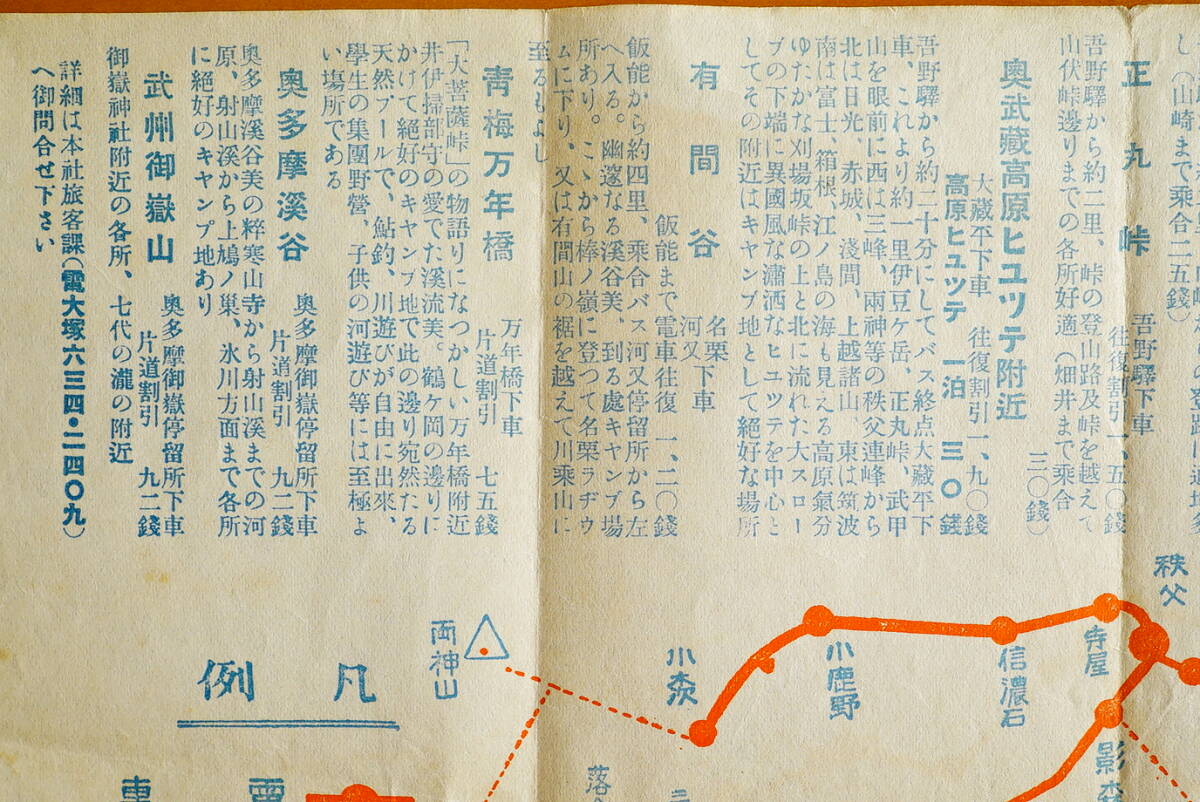 し（山崎まで乘合二五錢）
正丸峠
吾野驛下車
往復割引一、五〇錢
吾野驛から約二里、峠の登山路及峠を越えて
山伏峠邊りまでの各所好適（畑井まで乘合
三〇錢）
奥武藏高原ヒユツテ附近
大藏平下車　往復割引一、九〇錢
高原ヒユツテ　一泊　三〇錢
吾野驛から約二十分にしてバス終点大藏平下
車、これより約一里伊豆ケ岳、正丸峠、武甲
山を眼前に西は三峰、兩神等の秩父連峰から
北は日光、赤城、淺間、上越諸山、東は筑波
南は富士、箱根、江ノ島の海も見える高原氣分
ゆたかな刈場坂峠の上と北に流れた大スロー
プの下端に異國風な瀟洒なヒユツテを中心と
してその附近はキヤンプ地として絶好な場所
有間谷
名栗下車
河又
飯能まで電車往復　一、二〇錢
飯能から約四里、乘合バス河又停留所から左
へ入る。幽邃なる溪谷美、到る處キヤンプ場
所あり。こゝから棒ノ嶺に登つて名栗ラヂウ
ムに下り、又は有間山の裾を越えて川乘山に
至るもよし
青梅万年橋
万年橋下車
片道割引　七五錢
「大菩薩峠」の物語りになつかしい万年橋附近
井伊掃部守の愛でた溪流美。鶴ケ岡の邊りに
かけて絶好のキヤンプ地で此の邊り宛然たる
天然プールで、鮎釣、川遊びが自由に出來、
學生の集團野營、子供の河遊び等には至極よ
い場所である
奥多摩溪谷
奥多摩御嶽停留所下車
片道割引　九二錢
奥多摩溪谷美の粹寒山寺から射山溪までの河
原、射山溪から上鳩ノ巣、氷川方面まで各所
に絶好のキヤンプ地あり
武州御嶽山
奥多摩御嶽停留所下車
片道割引　九二錢
御嶽神社附近の各所、七代の瀧の附近
詳細は本社旅客課（電大塚六三四・二四〇九）
へ御問合せ下さい
秩父
寺屋
信濃石
小鹿野
小森
両神山
影森
凡例